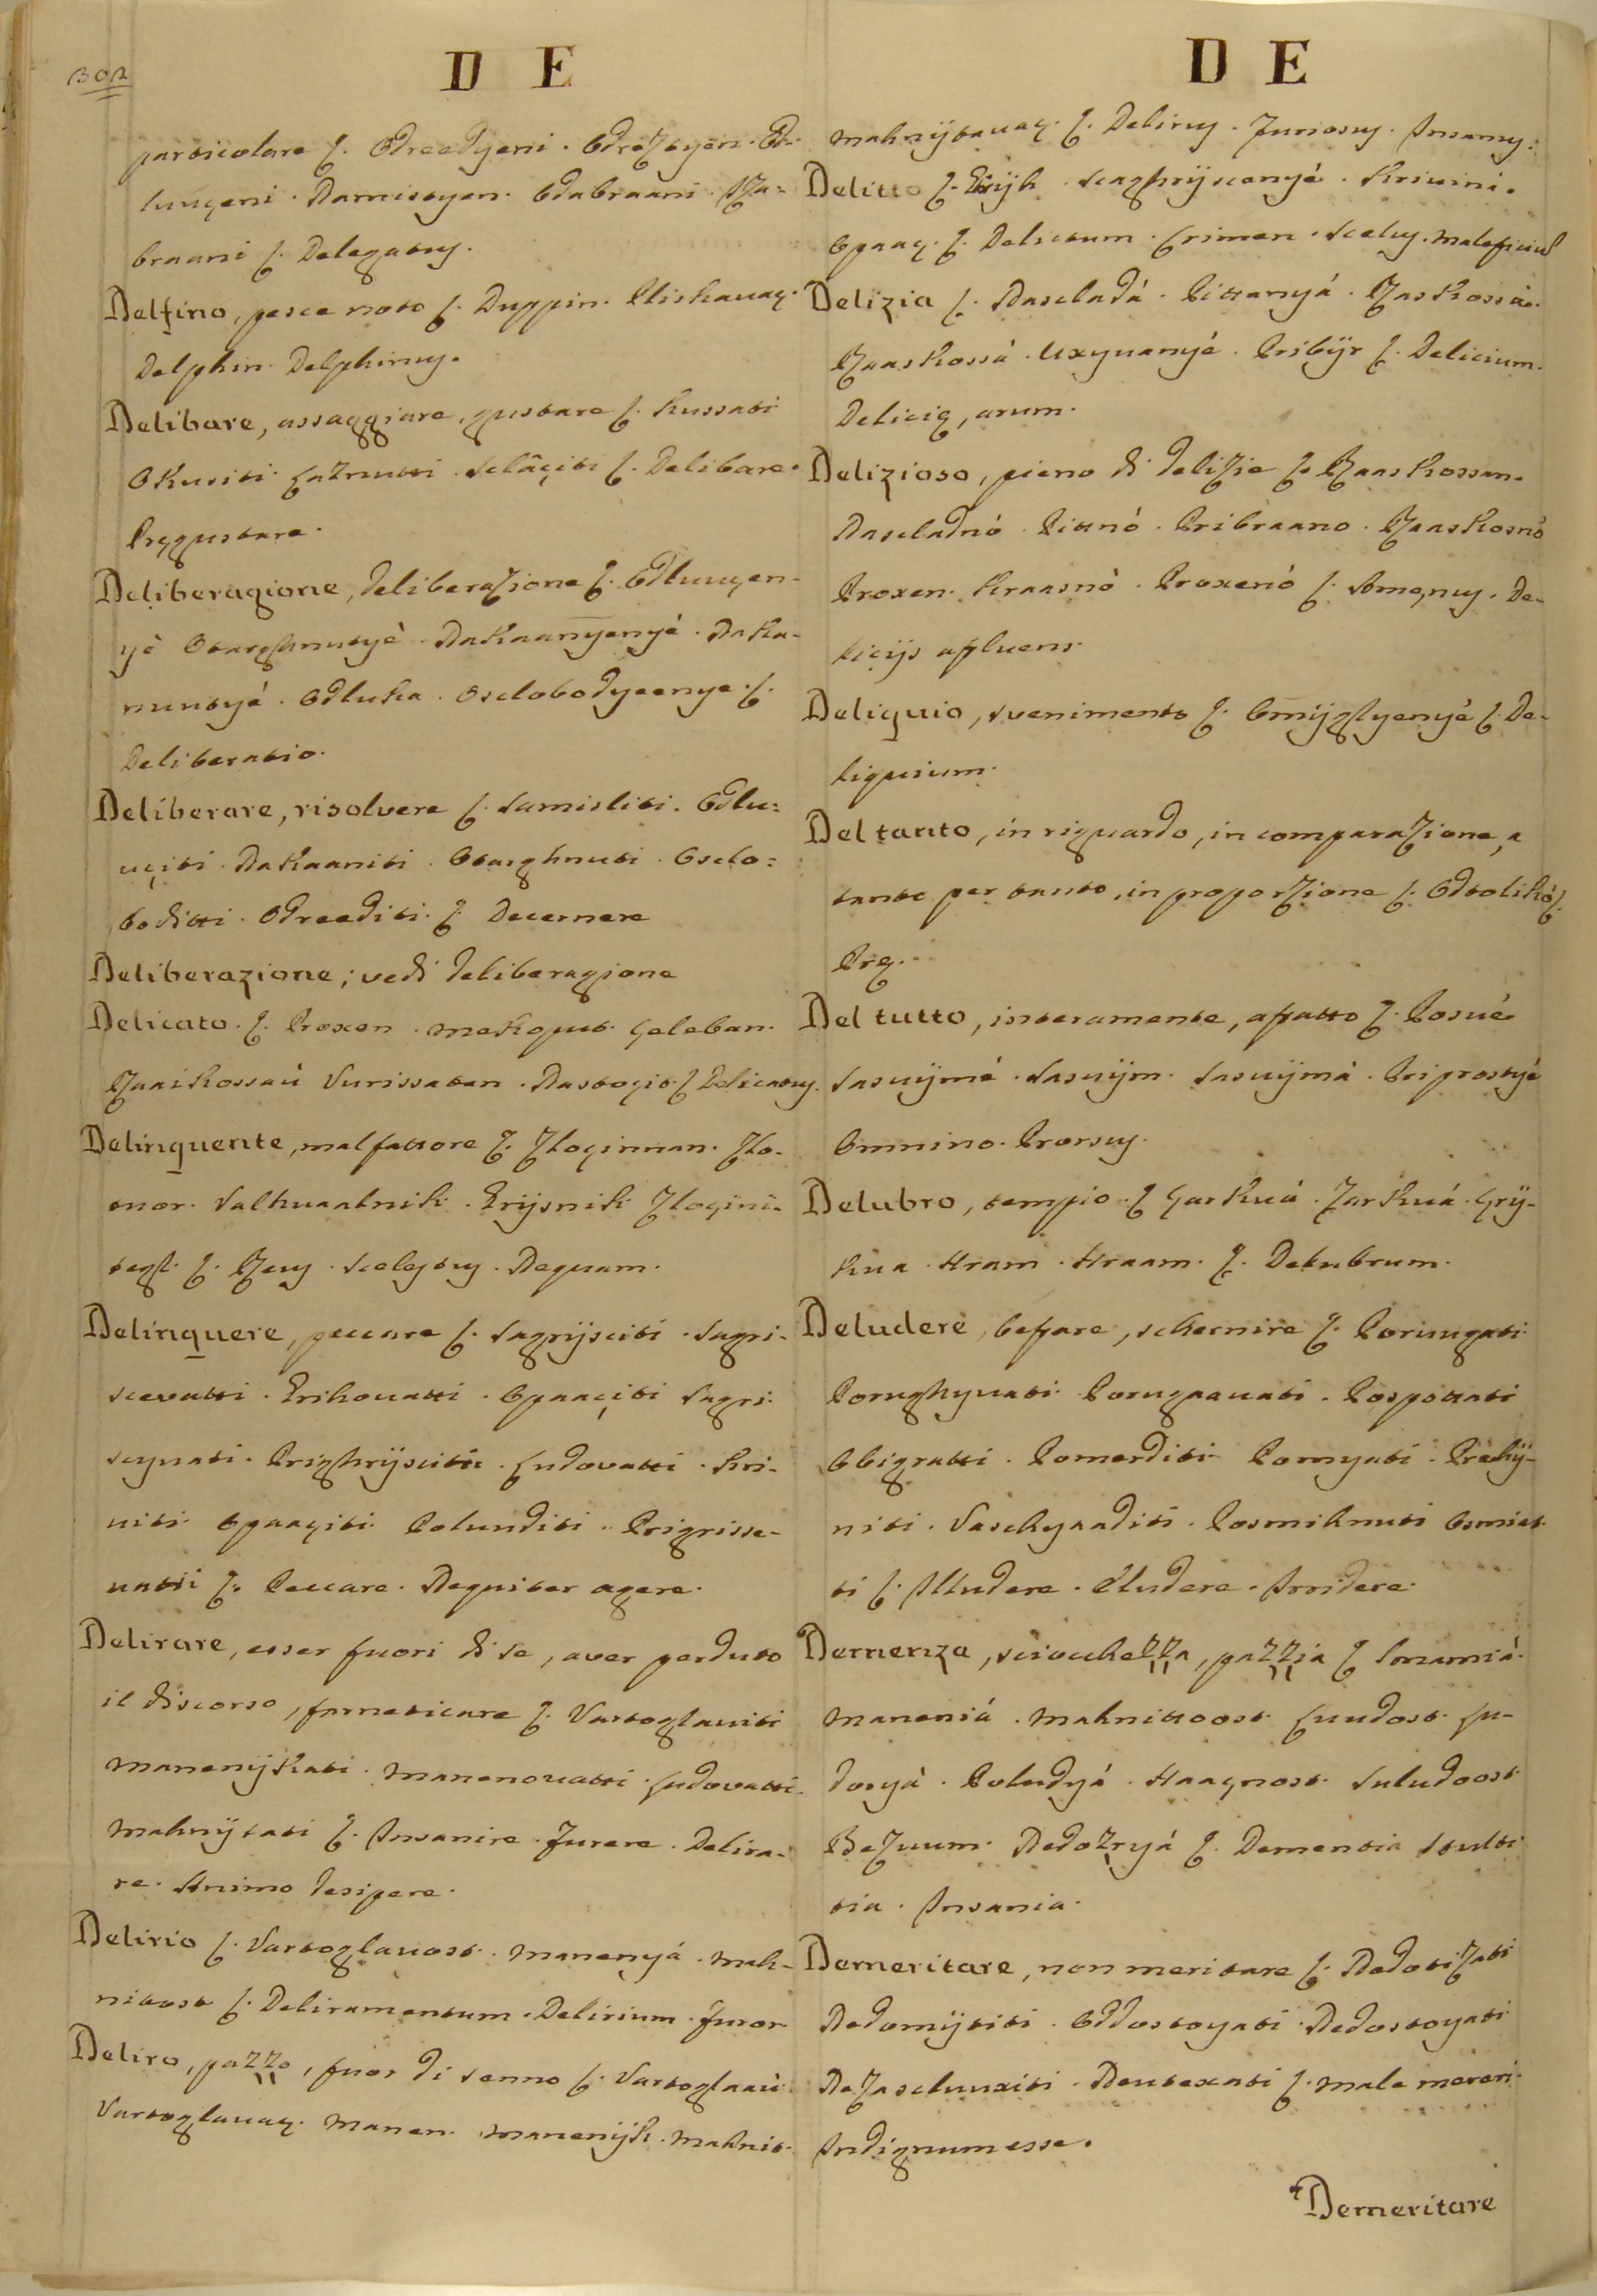 302
D E
particolare ʃ. Odreedyeni. Odreʒtyen. Od-
luuçeni. Namistyen. Odabraani. Iʒa-
braani ʃ. Delegatus.
Delfino, pesce noto ʃ. Duppin. Pliskavaç.
Delphin. Delphinus.
Delibare, assaggiare, gustare ʃ. Kussati
Okusiti. Laznutti. Sclâçiti ʃ. Delibare.
Pręgustare.
Deliberagione, deliberaʒione ʃ. Odluuçen-
yè Otarghnutyè. Nakaanyenyé. Naka-
nuutyé. Odluka. Osclobodyeenye. ʃ.
Deliberatio.
Deliberare, risolvere ʃ. Samisliti. Odlu-
uçiti. Nakaaniti. Otarghnuti. Osclo-
boditti. Odreediti. ʃ. Decernere
Deliberazione; vedi deliberagione
Delicato. ʃ. Proxen. Mekoput. Geleban.
Raaikossaù Vurissatan. Nastoçit ʃ Delicatus.
Delinquente, malfattore ʃ. ʒloçinnan. ʒlo-
onor. Valhuaalnik. Griysnik ʒloçini-
tegl. ʃ. Reus. Scelestus. Nequam.
Delinquere, peccare ʃ. Sagriysciti. Sagri-
scevatti. Grihovatti. Opaaçiti Sagri-
scyvati. Prighriysciti. Ludovatti. Kri-
viti. Opaaçiti. Poluuditi. Prigrisse-
vatti ʃ. Peccare. Nequiter agere.
Delirare, esser fuori di se, aver perduto
il discorso, farneticare ʃ. Vartoglaviti
Manenykati. Manenovatti. Ludovatti.
Mahnÿtati ʃ. Insanire. Furere. Delira-
re. Animo desipere.
Delirio ʃ. Vartoglavost. Manenyá. Mah-
nitost ʃ. Deliramentum. Delirium. Furor
Deliro, pazzo, fuor di senno ʃ. Vartoglaaù
Vartoglavaç. Manen. Manenÿk. Mahnit.
D E
Mahnÿtavaç. ʃ. Delirus. Furiosus. Insanus.
Delitto ʃ. Griyh. Scaghriyscenyé. Krivini.
Opaaç. ʃ. Delictum. Crimen. Scelus. Maleficiu
Delizia ʃ. Nascladá. Pittanyá. Raskossà.
Raaskossá. Uxyvanyé. Pribÿr ʃ. Delicium.
Delicię, arum.
Delizioso, pieno di deliʒie ʃ. Raaskossan.
Nascladnó. Pittnó. Pribraano. Raaskosnó
Proxen. Kraasnò. Proxenó ʃ. Amęnus. De-
licijs afluens.
Deliquio, svenimento ʃ. Omÿglyenyé ʃ. De-
liquium.
Del tanto, in riguardo, in comparaʒione, a
tanto per tanto, in proporʒione ʃ. Odtolikó ʃ.
Prę.
Del tutto, interamente, afatto ʃ. Posvé.
Sasvÿmé. Sasvÿm. Sasvÿmà. Priprostyé
Omnino. Prorsus.
Delubro, tempio. ʃ Çarkvá. ʒarkvá. Çrÿ-
kva. Hram. Hraam. ʃ. Delubrum.
Deludere, befare, schernire ʃ. Poruugati
Porughyvati. Porugaavati. Pospottati
Obigratti. Pomerditi. Pornyati. Prahÿ-
niti. Vaschyaaditi. Posmihnuti Osmiat-
ti ʃ. Illudere. Eludere. Irridere.
Demenza, sciocchezza, pazzia ʃ Smamiá.
Maneniá. Mahnittoost. Luudost. Lu-
doryà. Poludyá. Haaçnost. Suludoost.
Beʒuum. Nedoʒryá ʃ. Dementia Stulti
tia. Insania.
Demeritare, non meritare ʃ. Nedotiʒati
Nedomÿtiti. Oddostoyati. Nedostoyati
Neʒascluuxiti. Neutexati ʃ. Male mereri.
Indignum esse.
Demeritare